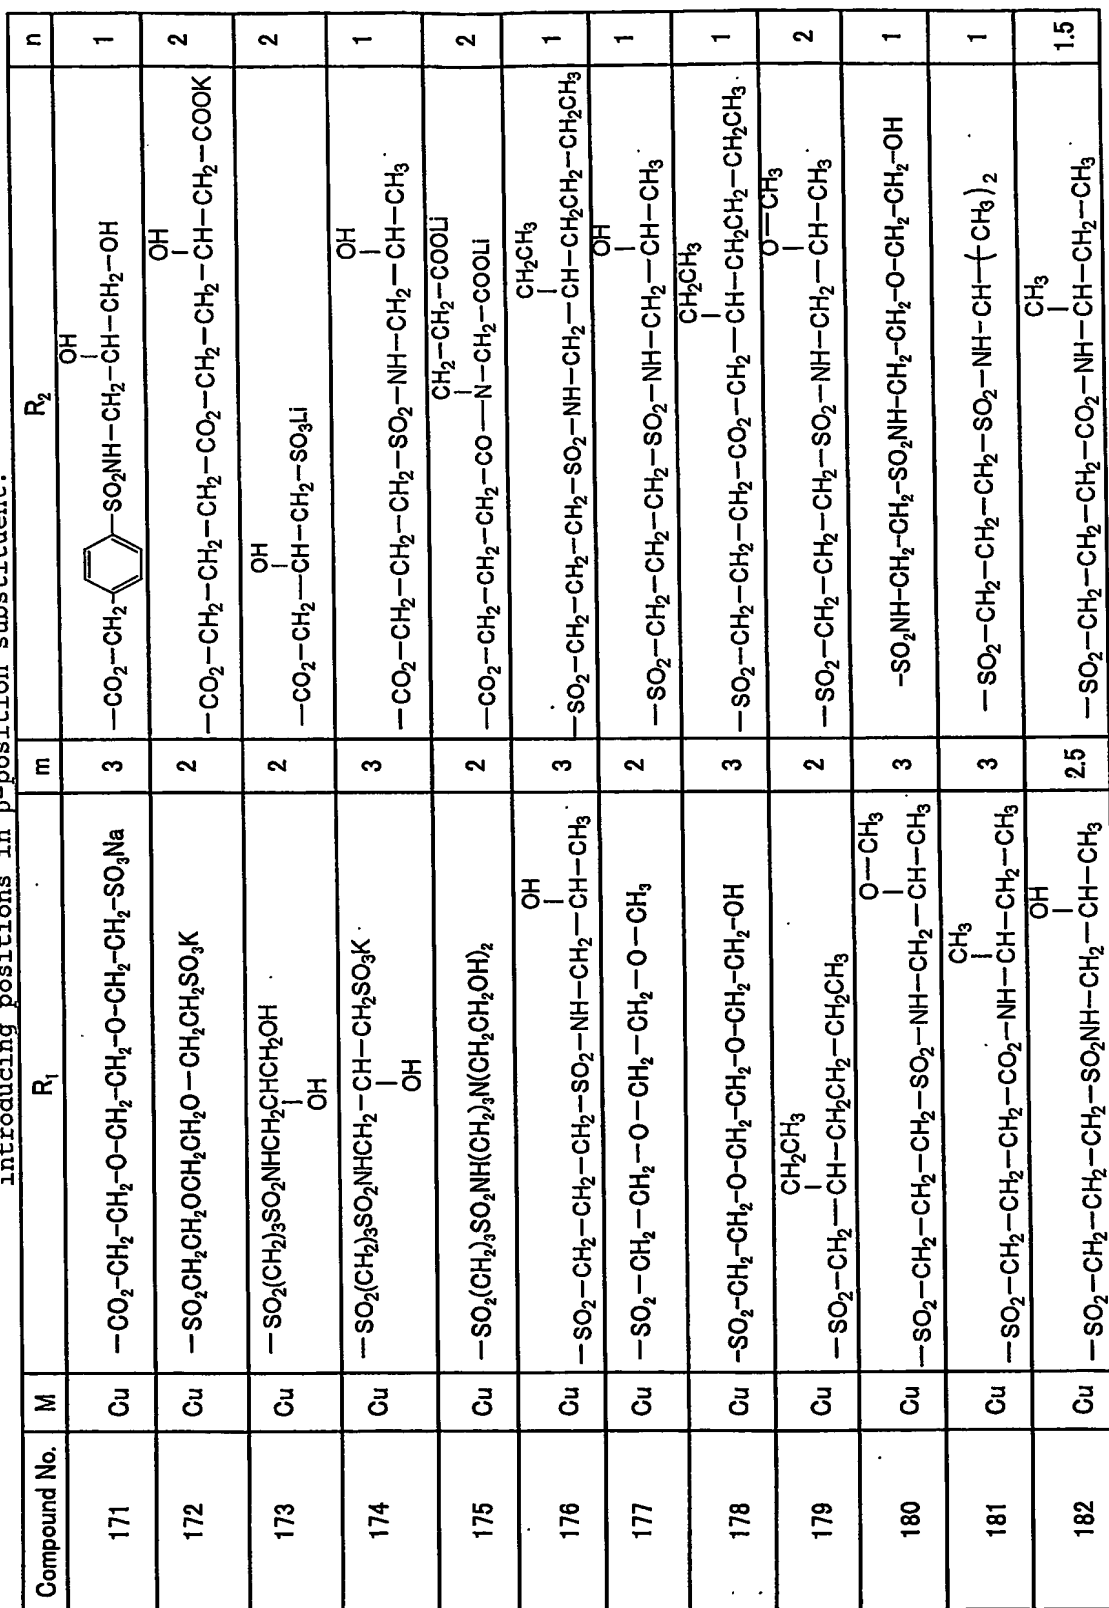 introducing positions in β-position substituent.
Compound No. M R₁ m R₂ n
171 Cu —CO₂-CH₂-CH₂-O-CH₂-CH₂-O-CH₂-CH₂-SO₃Na 3 —CO₂—CH₂-⌬-SO₂NH—CH₂—CH(OH)—CH₂—OH 1
172 Cu —SO₂CH₂CH₂OCH₂CH₂O—CH₂CH₂SO₃K 2 —CO₂—CH₂—CH₂—CH₂—CO₂—CH₂—CH₂—CH(OH)—CH₂—COOK 2
173 Cu —SO₂(CH₂)₃SO₂NHCH₂CH(OH)CH₂OH 2 —CO₂—CH₂—CH(OH)—CH₂—SO₃Li 2
174 Cu —SO₂(CH₂)₃SO₂NHCH₂—CH(OH)—CH₂SO₃K 3 —CO₂—CH₂—CH₂—CH₂—SO₂—NH—CH₂—CH(OH)—CH₃ 1
175 Cu —SO₂(CH₂)₃SO₂NH(CH₂)₃N(CH₂CH₂OH)₂ 2 —CO₂—CH₂—CH₂—CH₂—CO—N(CH₂—CH₂—COOLi)—CH₂—COOLi 2
176 Cu —SO₂—CH₂—CH₂—CH₂—SO₂—NH—CH₂—CH(OH)—CH₃ 3 —SO₂—CH₂—CH₂—CH₂—SO₂—NH—CH₂—CH(CH₂CH₃)—CH₂CH₂—CH₂CH₃ 1
177 Cu —SO₂—CH₂—CH₂—O—CH₂—CH₂—O—CH₃ 2 —SO₂—CH₂—CH₂—CH₂—SO₂—NH—CH₂—CH(OH)—CH₃ 1
178 Cu —SO₂-CH₂—CH₂—O—CH₂—CH₂—O—CH₂—CH₂—OH 3 —SO₂—CH₂—CH₂—CH₂—CO₂—CH₂—CH(CH₂CH₃)—CH₂CH₂—CH₂CH₃ 1
179 Cu —SO₂—CH₂—CH(CH₂CH₃)—CH₂CH₂—CH₂CH₃ 2 —SO₂—CH₂—CH₂—CH₂—SO₂—NH—CH₂—CH(O—CH₃)—CH₃ 2
180 Cu —SO₂—CH₂—CH₂—CH₂—SO₂—NH—CH₂—CH(O—CH₃)—CH₃ 3 -SO₂NH-CH₂-CH₂-SO₂NH-CH₂-CH₂-O-CH₂-CH₂-OH 1
181 Cu —SO₂—CH₂—CH₂—CH₂—CO₂—NH—CH(CH₃)—CH₂—CH₃ 3 —SO₂—CH₂—CH₂—CH₂—SO₂—NH—CH-(CH₃)₂ 1
182 Cu —SO₂—CH₂—CH₂—CH₂—SO₂NH—CH₂—CH(OH)—CH₃ 2.5 —SO₂—CH₂—CH₂—CH₂—CO₂—NH—CH(CH₃)—CH₂—CH₃ 1.5